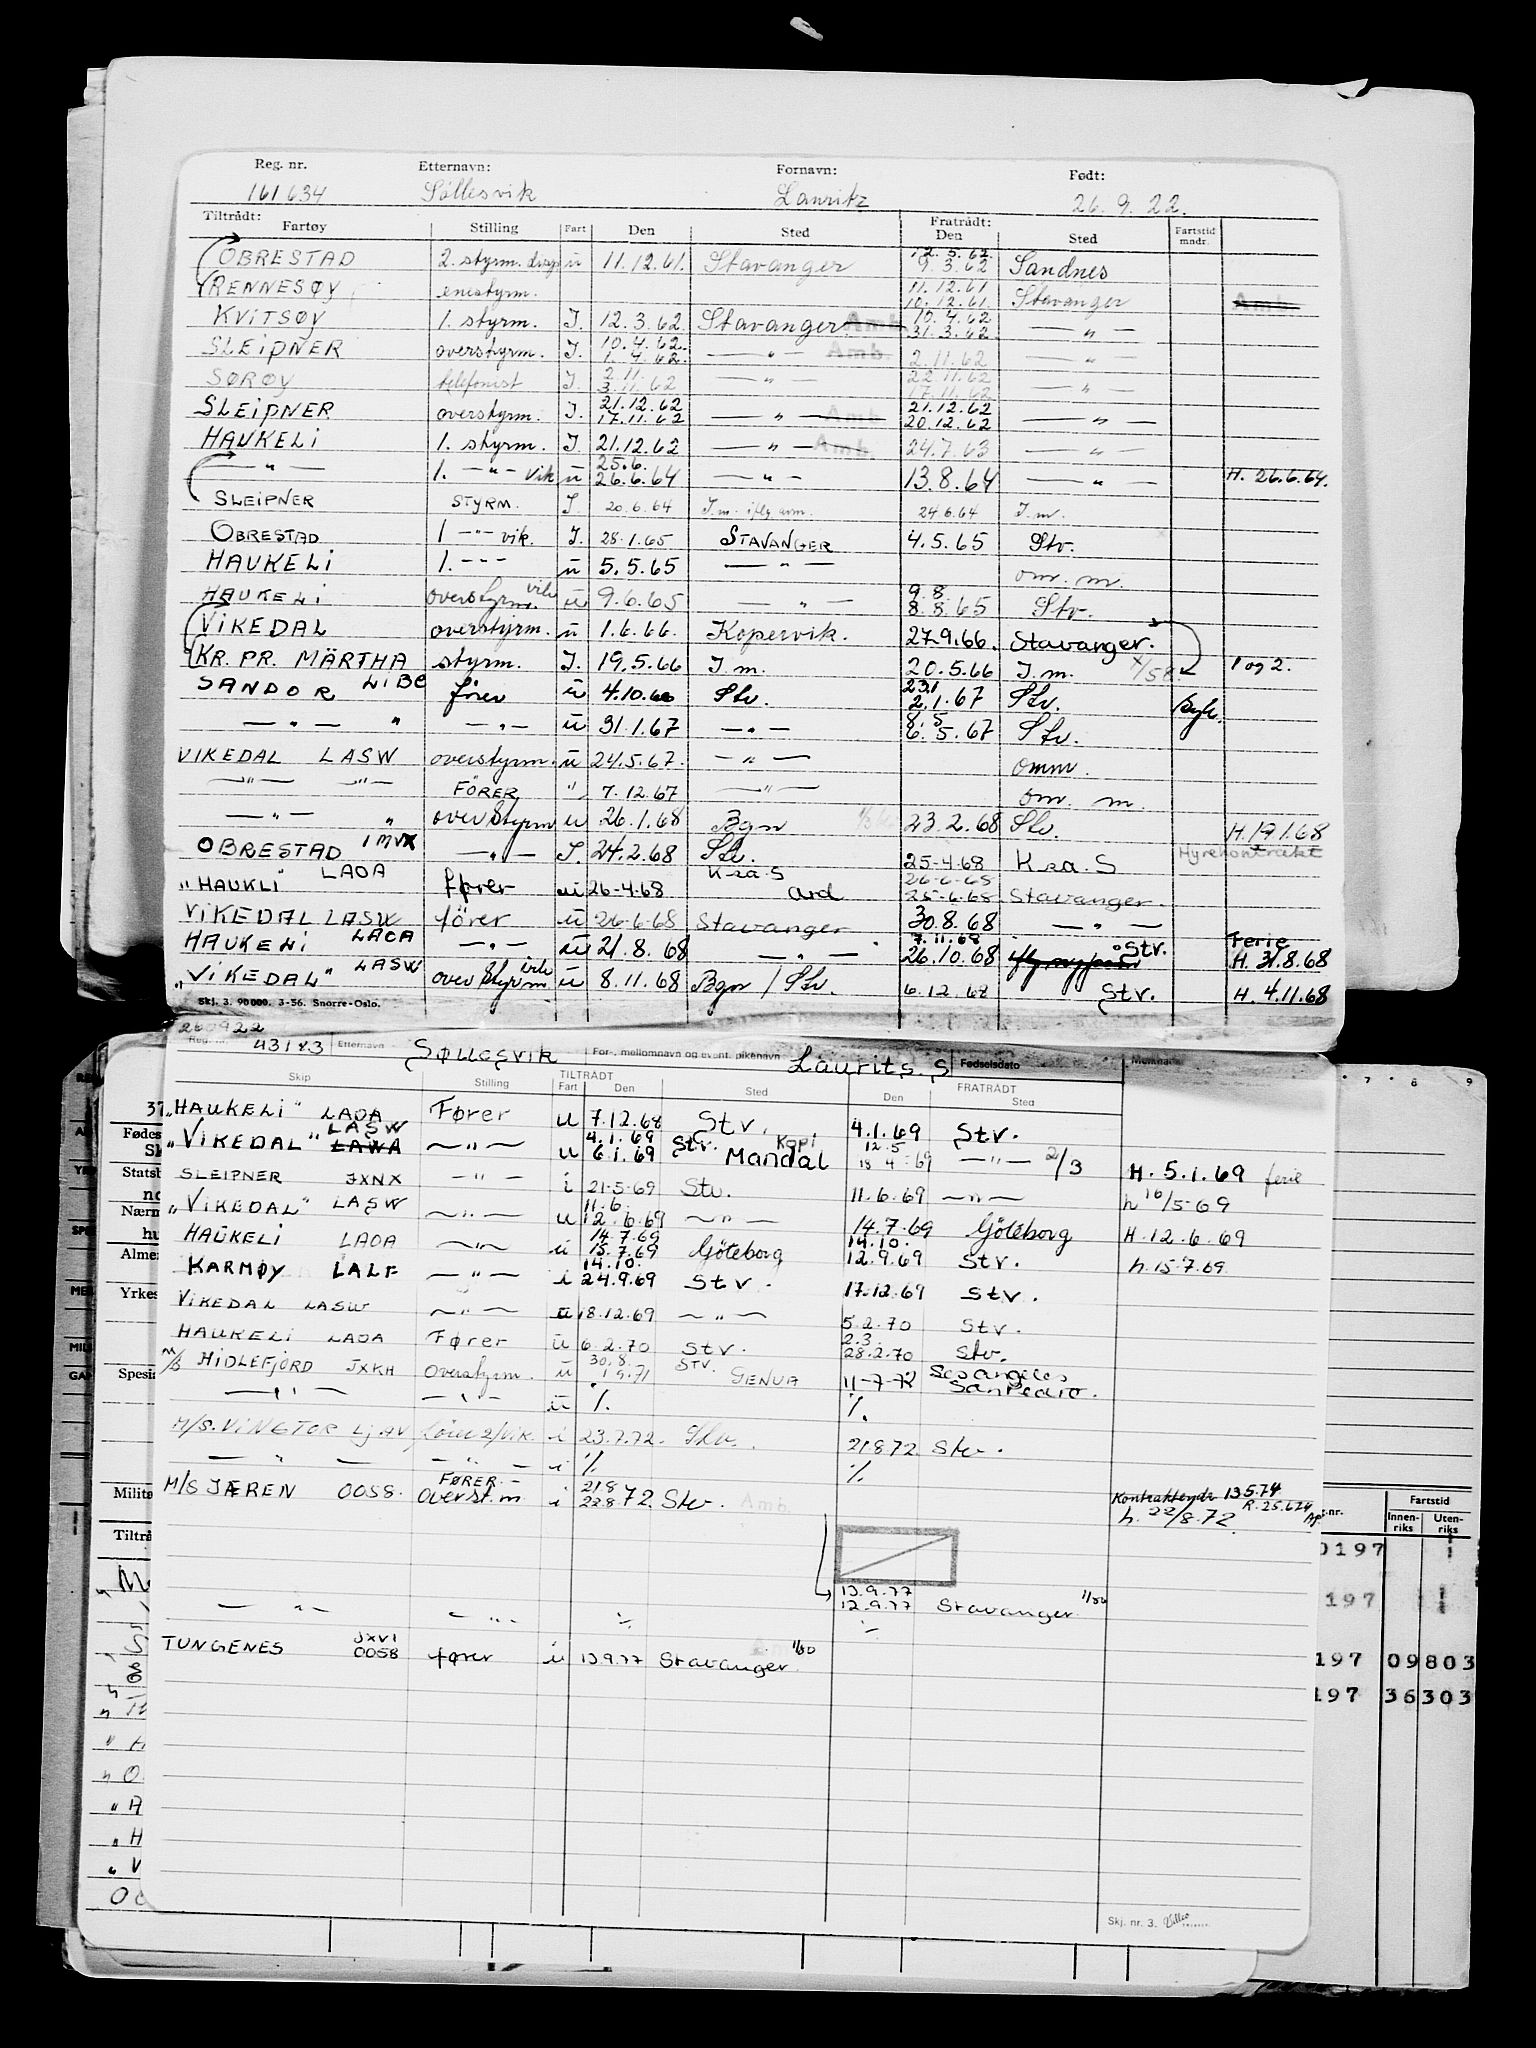 Reg. nr. Etternavn: Fornavn: Født:
161634 Søllesvik Lauritz 26.9.22.
Tiltrådt: Fratrådt:
Fartøy Stilling Fart Den Sted Den Sted Fartstid mndr.
12.5.62.
OBRESTAD 2. styrm. disp u 11.12.61. Stavanger 9.3.62 Sandnes
11.12.61
RENNESØY enestyrm. 10.12.61. Stavanger Amb.
10.4.62
KVITSØY 1. styrm. I. 12.3.62. Stavanger Amb. 31.3.62 — " —
10.4.62.
SLEIPNER overstyrm. I. 1.4.62. — " — Amb. 2.11.62 — " —
2.11. 22.11.62
SØRØY telefonist I. 3.11.62 — " — 17.11.62 — " —
21.12.62 21.12.62
SLEIPNER overstyrm. I. 17.11.62 — " — Amb. 20.12.62 — " —
HAUKELI 1. styrm. I. 21.12.62 — " — Amb. 24.7.63 — " —
25.6.
— " — 1. — " — vik u 26.6.64 — " — 13.8.64 — " — H. 26.6.64.
SLEIPNER STYRM. I. 20.6.64 I.m. iflg. avm. 24.6.64 I.m.
OBRESTAD 1 — " — vik. I. 28.1.65 STAVANGER 4.5.65 Stv.
HAUKELI 1. - " - u 5.5.65 — " — om. m.
9.8.
HAUKELI overstyrm. vik u 9.6.65 — " — 8.8.65 Stv.
VIKEDAL overstyrm. u 1.6.66. Kopervik. 27.9.66. Stavanger.
KR. PR. MÄRTHA styrm. I. 19.5.66 I.m. 20.5.66 I.m. x/58 1 og 2.
23.1
SANDOR LIBC fører u 4.10.66 Stv. 2.1.67 Stv.
8.5
— " — " — " — u 31.1.67 — " — 6.5.67 Stv.
VIKEDAL LASW overstyrm. u 24.5.67. — " — omm.
— " — — " — FÖRER " 7.12.67 — " — om. m.
— " — " overstyrm u 26.1.68 Bgn 23.2.68 Stv. H. 17.1.68
OBRESTAD IMVX — " — I. 24.2.68 Stv. 25-4-68 K.sa.S Hyrekontrakt
26-6-68
"HAUKLI" LAOA fører u 26-4-68 K.sa.S ard 25-6-68 Stavanger.
VIKEDAL LASW fører u 26.6.68 Stavanger 30.8.68 — " —
7.11.68 Ferie
HAUKELI LAOA — " — u 21.8.68 — " — 26.10.68 Stv. H. 31.8.68
"VIKEDAL" LASW overstyrm vik u 8.11.68 Bgn / Stv. 6.12.68 Stv. H. 4.11.68
Skj. 3. 90000. 3-56. Snorre-Oslo.
260922
Reg. nr. 43123 Etternavn Søllesvik For-, mellomnavn og event. pikenavn Laurits S Fødselsdato Merknader
TILTRÅDT FRATRÅDT
Skip Stilling Fart Den Sted Den Sted
"HAUKELI" LAOA Fører u 7.12.68 Stv. 4.1.69 Stv.
LASW 4.1.69 Kopi 12.5
"VIKEDAL" LAWA — " — u 6.1.69 Stv. Mandal 18.4.69 — " — 2/3 H. 5.1.69 ferie
SLEIPNER JXNX — " — i 21-5-69 Stv. 11.6.69 — " — h 16/5-69
11.6.
"VIKEDAL" LASW — " — u 12.6.69 — " — 14.7.69 Göteborg H. 12.6.69
14.7.69 14.10.
HAUKELI LAOA — " — u 15.7.69 Göteborg 12.9.69 Stv. h. 15.7.69
14.10.
KARMØY LALF — " — i 24.9.69 Stv. 17.12.69 Stv.
VIKEDAL LASW — " — u 18.12.69 — " — 5.2.70 Stv.
2.3.
HAUKELI LAOA Fører u 6.2.70 Stv. 28.2.70 Stv.
30.8. Stv. Los Angeles
M/S HIDLEFJORD JXKH Overstyrm. u 1.9.71 GENUA 11-7-72 San Pedro.
— " — — " — u ./. ./.
M/S. VINGTOR LJAV fører 2/vik. i 23.7.72. Stv. 21.8.72. Stv.
— " — — " — i ./. ./.
FØRER 21.8
M/S JÆREN 0058. Overst.m i 22.8.72. Stv. Amb. Kontraktendr 13.5.74 R. 25.6.74
h. 22/8.72.
13.9.77
12.9.77 Stavanger
— " — — " — ./. ./.
JXVI
TUNGENES 0058 fører i 13.9.77 Stavanger
Skj. nr. 3.
Føde
Statsb
Nærm
Alme
Yrkes
Spesi
Milit
Tiltrå
7 8 9
nr. Fartstid
Innenriks Utenriks
0197
197
197 09803
197 36303